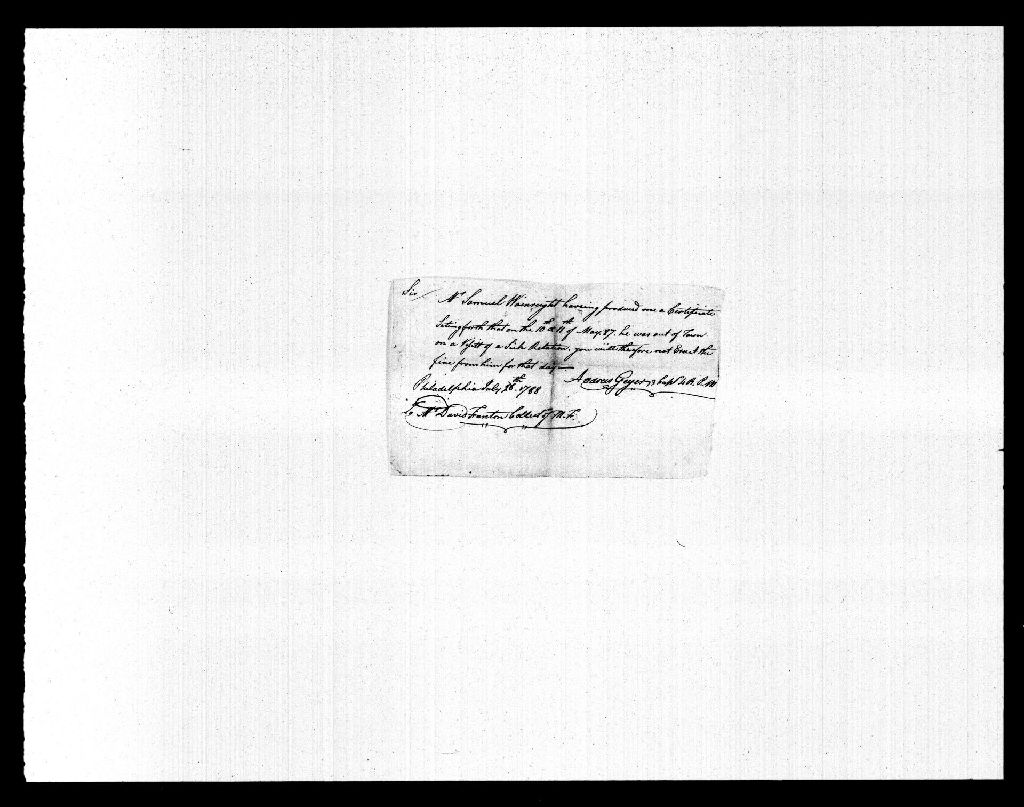 Sir/
Mr Samuel Wainwright having produced me a Certificate
Seting forth that on the 10th & 11th of May 87. he was out of Town
on a Visitt of a Sick Relation, you will therefore not Exact the
fine from him for that day—
Philadelphia July 28th 1788 Andrew Geyer Capt
To Mr David Franton Collect of M. F.